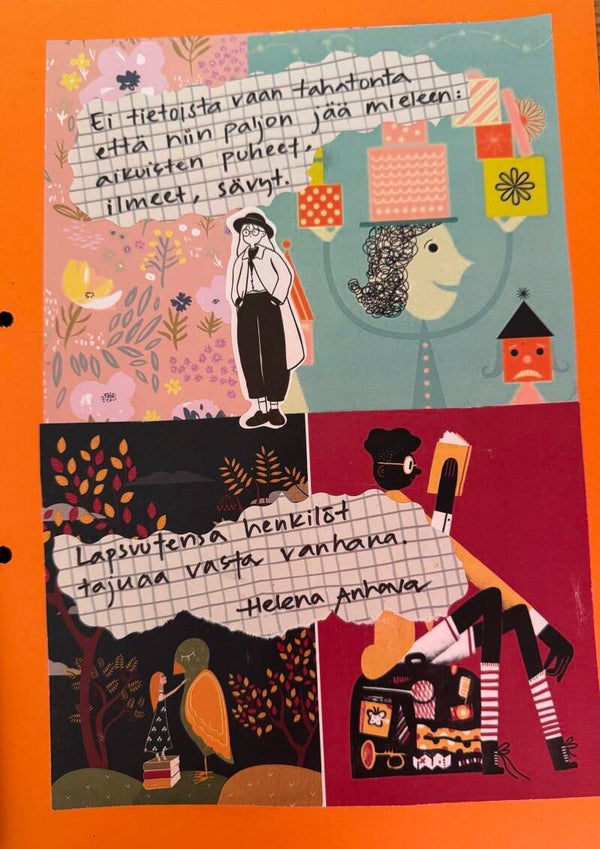 Ei tietoista vaan tahatonta
että niin paljon jää mieleen:
aikuisten puheet,
ilmeet, sävyt.
Lapsuutensa henkilöt
tajuaa vasta vanhana.
Helena Anhava